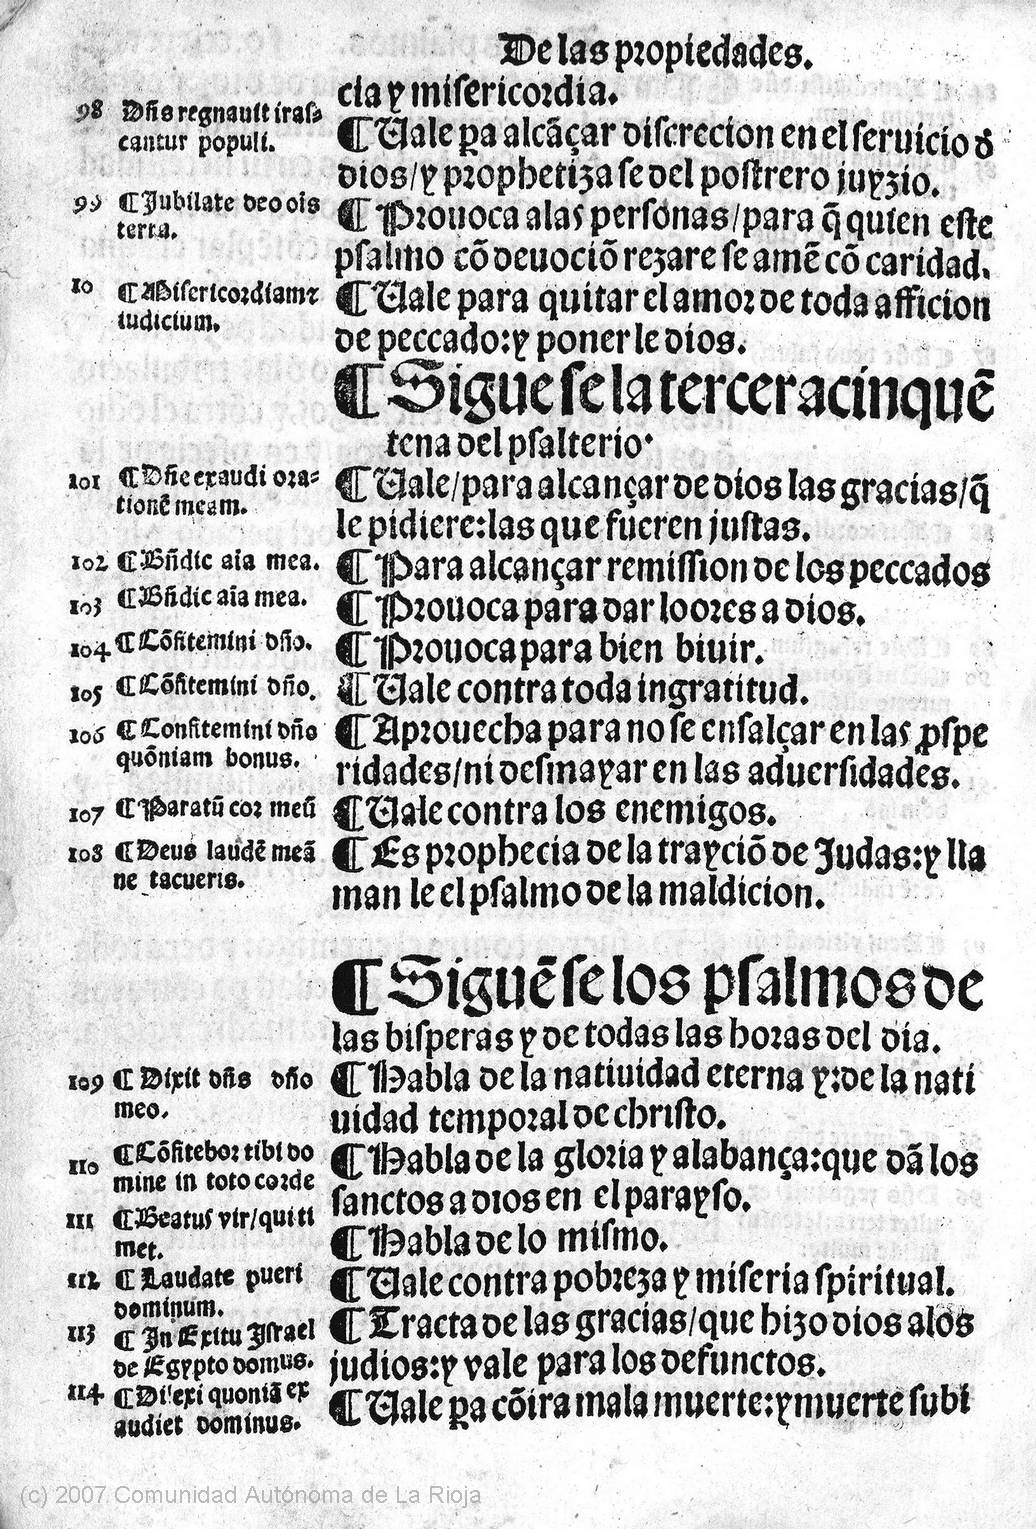 De las propiedades.
cia y misericordia.
98 Dn̄s regnauit iras⸗
cantur populi.
¶ Uale ꝑa alcāçar discrecion en el seruicio đ
dios/y prophetiza se del postrero juyzio.
99 ¶ Jubilate deo oīs
terra.
¶ Prouoca a las personas/para q̄ quien este
psalmo cō deuociō rezare se amē cō caridad.
10 ¶ Misericordiam ⁊
iudicium.
¶ Uale para quitar el amor de toda afficion
de peccado: y poner le dios.
¶ Sigue se la tercera cinquē
tena del psalterio.
101 ¶ Dn̄e exaudi ora⸗
tionē meam.
¶ Uale/para alcançar de dios las gracias/q̄
le pidiere: las que fueren justas.
102 ¶ Bn̄dic aīa mea.
¶ Para alcançar remission de los peccados
103 ¶ Bn̄dic aīa mea.
¶ Prouoca para dar loores a dios.
104 ¶ Cōfitemini dn̄o.
¶ Prouoca para bien biuir.
105 ¶ Cōfitemini dn̄o.
¶ Uale contra toda ingratitud.
106 ¶ Confitemini dn̄o
quōniam bonus.
¶ Aprouecha para no se ensalçar en las ꝓspe
ridades/ni desmayar en las aduersidades.
107 ¶ Paratū cor meū
¶ Uale contra los enemigos.
108 ¶ Deus laudē meā
ne tacueris.
¶ Es prophecia de la trayciō de Judas: y lla
man le el psalmo de la maldicion.
¶ Siguē se los psalmos de
las bisperas y de todas las horas del dia.
109 ¶ Dixit dn̄s dn̄o
meo.
¶ Habla de la natiuidad eterna y: de la nati
uidad temporal de christo.
110 ¶ Cōfitebor tibi do
mine in toto corde
¶ Habla de la gloria y alabança: que dā los
sanctos a dios en el parayso.
111 ¶ Beatus vir/qui ti
met.
¶ Habla de lo mismo.
112 ¶ Laudate pueri
dominum.
¶ Uale contra pobreza y miseria spiritual.
113 ¶ In Exitu Israel
de Egypto domus.
¶ Tracta de las gracias/que hizo dios a los
judios: y vale para los defunctos.
114 ¶ Dilexi quoniā ex
audiet dominus.
¶ Uale ꝑa cōtra mala muerte: y muerte subi
(c) 2007 Comunidad Autónoma de La Rioja